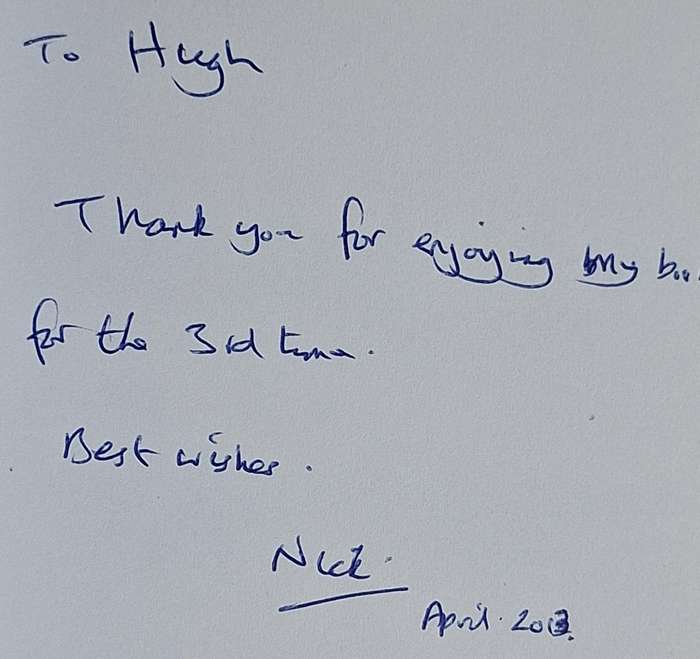 To Hugh
Thank you for enjoying my
for the 3rd time.
Best wishes.
Nick.
April.